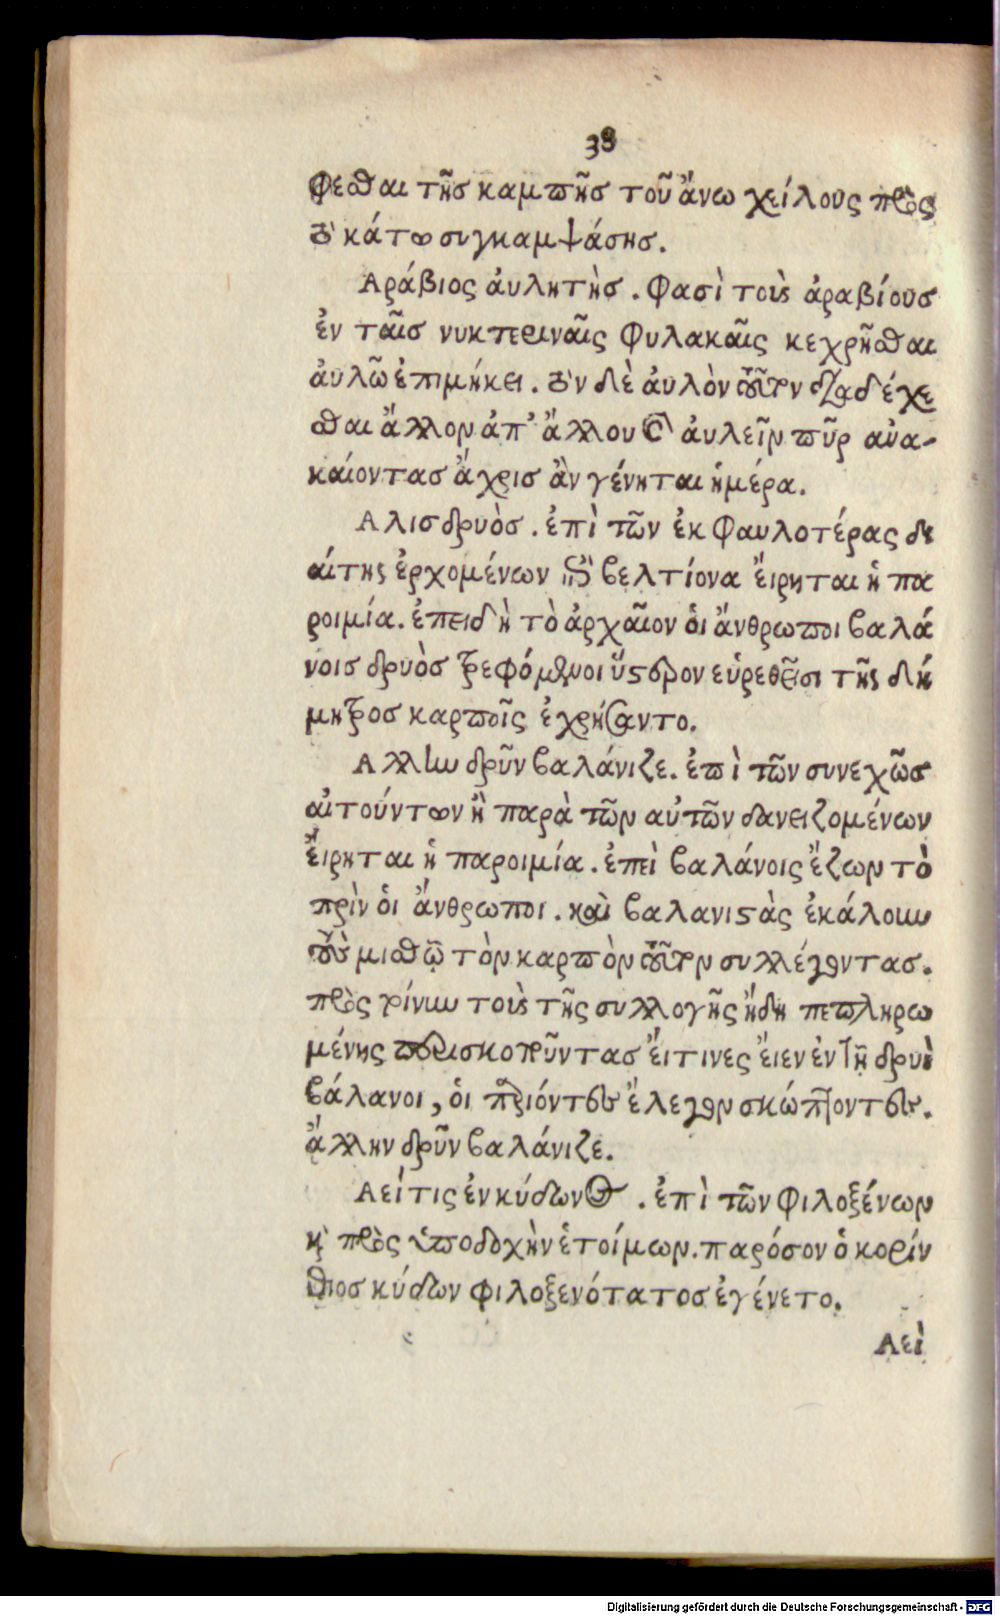 38
φεσθαι τῆς καμπῆς τοῦ ἄνω χείλους πρὸς
τὸ κάτω συγκαμψάσης.
Αράβιος ἀυλητὴς. Φασὶ τοὺς ἀραβίους
ἐν ταῖς νυκτεριναῖς Φυλακαῖς κεχρῆσθαι
ἀυλῶ ἐπιμήκει. τὸν δὲ ἀυλὸν τοῦτον διαδέχε
σθαι ἄλλον ἀπ' ἄλλου καὶ ἀυλεῖν πῦρ ανα-
καίοντας ἄχρις ἂν γένηται ἡμέρα.
Αλις δρυὸς. ἐπὶ τῶν ἐκ Φαυλοτέρας δι
αίτης ἐρχομένων ἐπὶ βελτίονα ἔιρηται ἡ πα
ροιμία. ἐπειδὴ τὸ ἀρχαῖον ὁι ἄνθρωποι βαλά
νοις δρυὸς τρεφόμενοι ὕστερον εὑρεθεῖσι τῆς δή
μητρος καρποῖς ἐχρήσαντο.
Αλλην δρῦν βαλάνιζε. ἐπὶ τῶν συνεχῶς
αἰτούντων ἢ παρὰ τῶν αὐτῶν δανειζομένων
ἔιρηται ἡ παροιμία. ἐπεὶ βαλάνοις ἔζων τὸ
πρὶν ὁι ἄνθρωποι. καὶ βαλανιστὰς ἐκάλουν
τοὺς μισθῷ τὸν καρπὸν τοῦτον συλλέγοντας.
πρὸς γίνουν τοὺς τῆς συλλογῆς ἤδη πεπληρω
μένης περισκοποῦντας ἔιτινες ἔιεν ἐν τῇ δρυὶ
βάλανοι, ὁι παριόντες ἔλεγον σκώπτοντες.
ἄλλην δρῦν βαλάνιζε.
Αείτις ἐν κύδωνος. ἐπὶ τῶν φιλοξένων
καὶ πρὸς ὑποδοχὴν ἑτοίμων. παρόσον ὁ κορίν
θιος κύδων φιλοξενότατος ἐγένετο.
Αεὶ
Digitalisierung gefördert durch die Deutsche Forschungsgemeinschaft - DFG